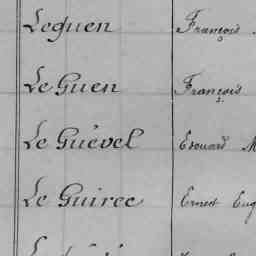 Loguen François
Le Guen François
Le Guével Edouard M
Le Guirec Ernest Eug